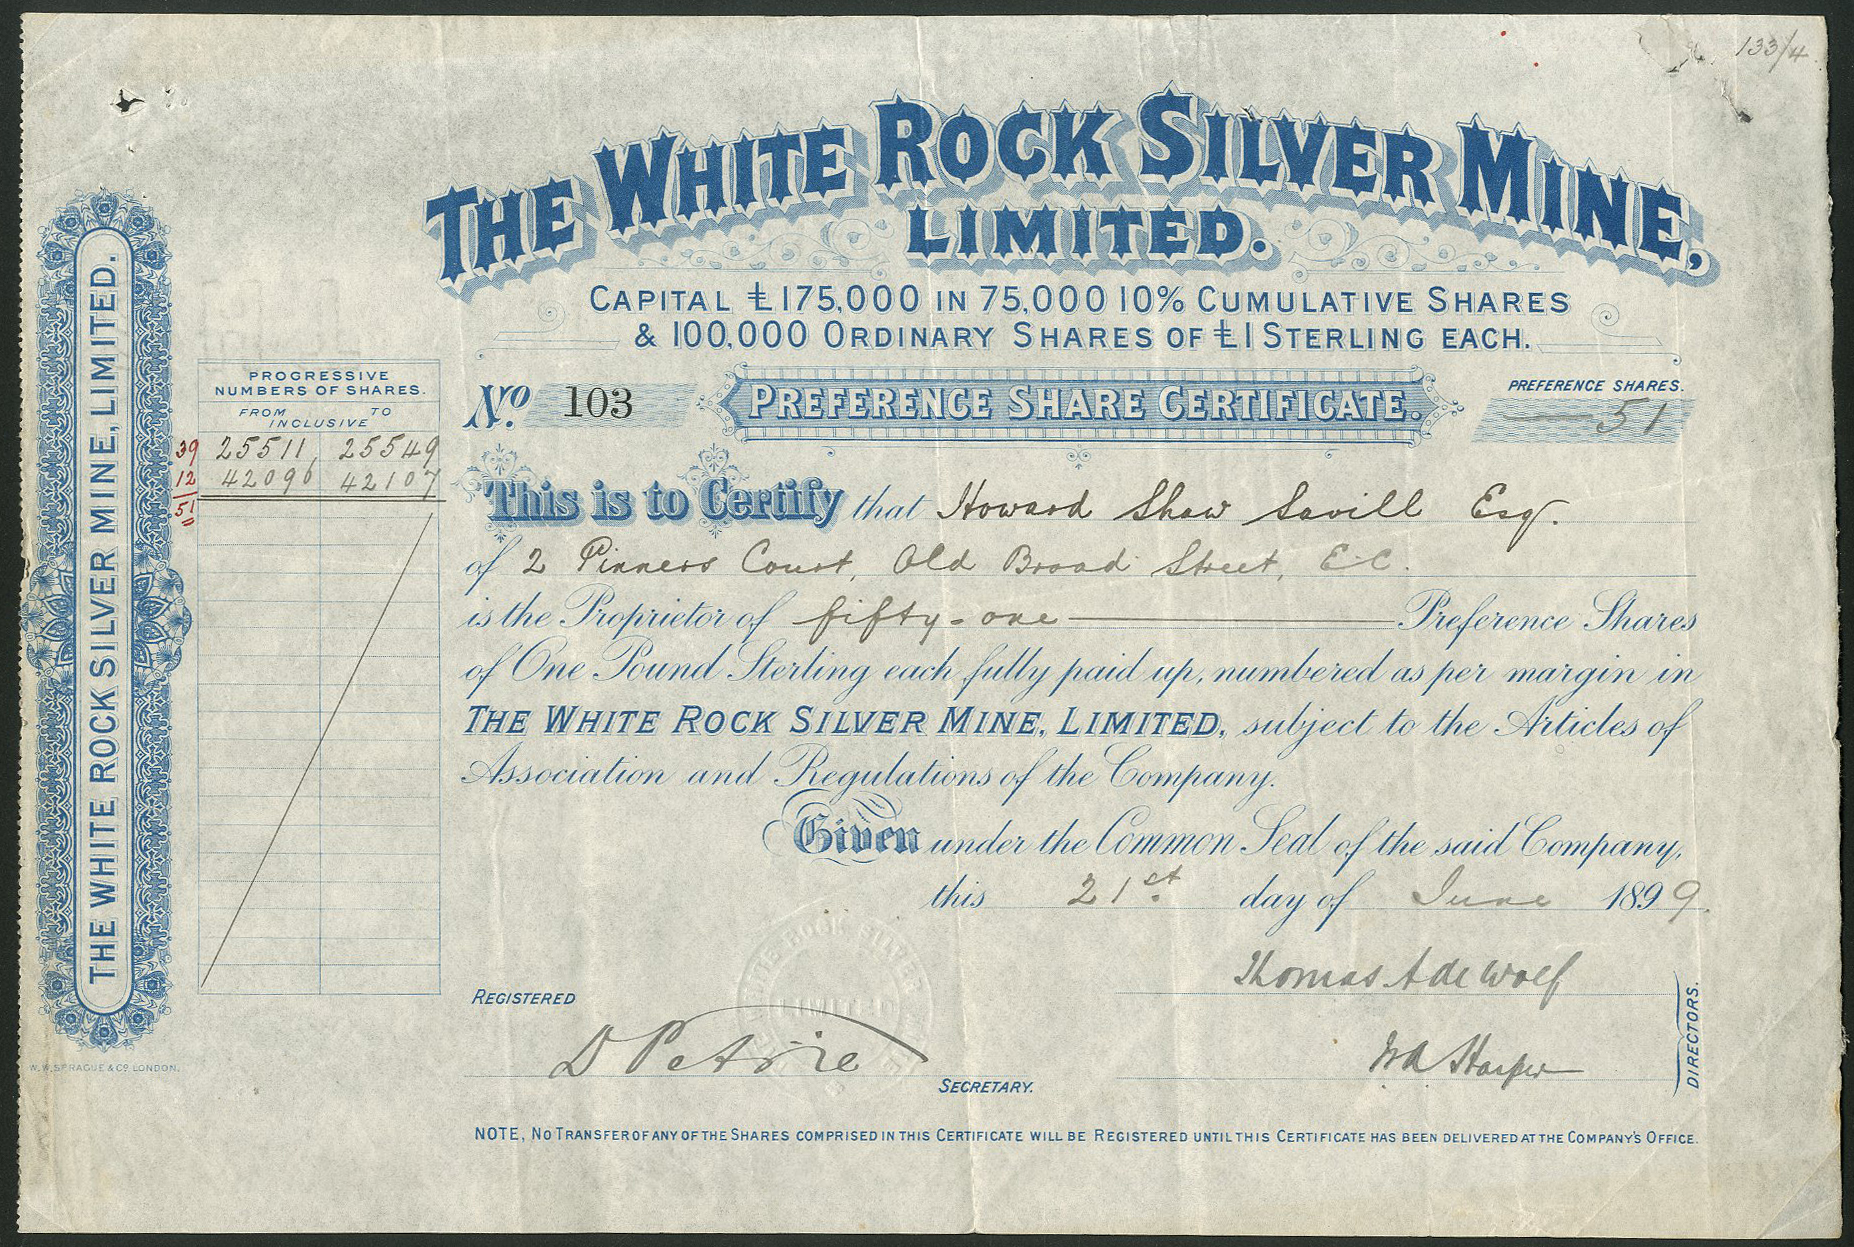 133/4
THE WHITE ROCK SILVER MINE,
LIMITED.
CAPITAL £175,000 IN 75,000 10% CUMULATIVE SHARES
& 100,000 ORDINARY SHARES OF £1 STERLING EACH.
No. 103
PREFERENCE SHARE CERTIFICATE.
PREFERENCE SHARES.
51
THE WHITE ROCK SILVER MINE, LIMITED.
PROGRESSIVE
NUMBERS OF SHARES.
FROM TO
INCLUSIVE
39 25511 25549
12 42096 42107
51
This is to Certify that Howard Shaw Savill Esq.
of 2 Pinners Court, Old Broad Street, E.C.
is the Proprietor of fifty-one Preference Shares
of One Pound Sterling each fully paid up, numbered as per margin in
THE WHITE ROCK SILVER MINE, LIMITED, subject to the Articles of
Association and Regulations of the Company.
Given under the Common Seal of the said Company,
this 21st. day of June 1899.
Thomas A de Wolf
REGISTERED
D Petrie
SECRETARY.
Harper
DIRECTORS.
W.W. SPRAGUE & CO. LONDON.
NOTE, NO TRANSFER OF ANY OF THE SHARES COMPRISED IN THIS CERTIFICATE WILL BE REGISTERED UNTIL THIS CERTIFICATE HAS BEEN DELIVERED AT THE COMPANY'S OFFICE.